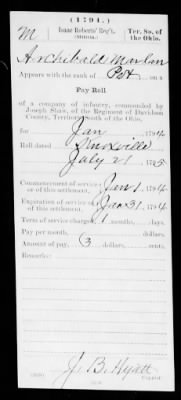 (1794.)
M | Isaac Roberts' Reg't, Militia. | Ter. So. of the Ohio.
Archibald Marlin
Appears with the rank of Pvt on a
Pay Roll
of a company of infantry, commanded by
Joseph Shaw, of the Regiment of Davidson
County, Territory South of the Ohio,
for Jan, 1794
Roll dated Knoxville
July 21, 1795
Commencement of service or of this settlement. Jan 1, 1794
Expiration of service or of this settlement. Jan 31, 1794
Term of service charged, 1 months, days.
Pay per month, dollars.
Amount of pay, 3 dollars, cents.
Remarks:
J. B. Hyatt
Copyist.